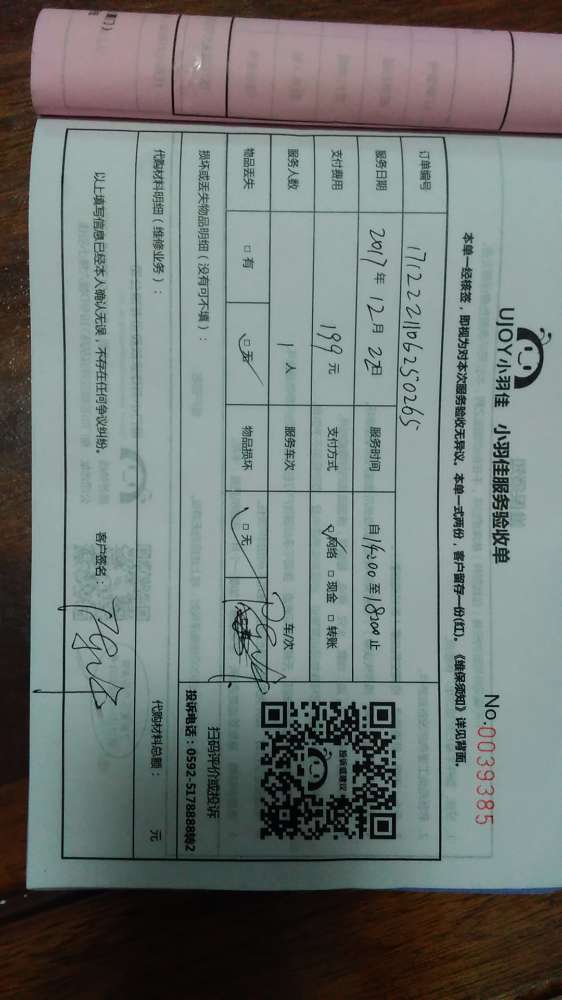 UJOY小羽佳 小羽佳服务验收单
No.0039385
本单一经核签，即视为对本次服务验收无异议。本单一式两份，客户留存一份(红)。《维保须知》详见背面。
订单编号 1712221106250265
服务日期 2017年12月22日 服务时间 自14:00至18:00止
支付费用 199元 支付方式 ☑网络 □现金 □转账
服务人数 1人 服务车次 车/次
物品丢失 □有 ☑无 物品损坏 ☑无
损坏或丢失物品明细（没有可不填）：
投诉或建议
扫码评价或投诉
投诉电话：0592-5178888转2
代购材料明细（维修业务）： 代购材料总额： 元
以上填写信息已经本人确认无误，不存在任何争议纠纷。 客户签名：